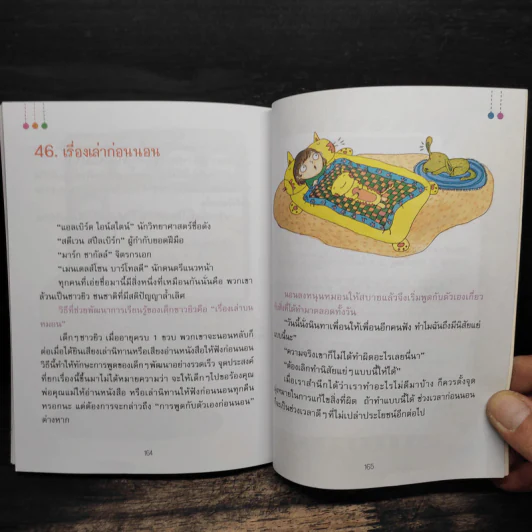 46. เรื่องเล่าก่อนนอน
"แอลเบิร์ต ไอน์สไตน์" นักวิทยาศาสตร์ชื่อดัง
"สตีเวน สปีลเบิร์ก" ผู้กำกับยอดฝีมือ
"มาร์ก ชากัลล์" จิตรกรเอก
"เมนเดลส์โซน บาร์โทลดี" นักดนตรีแนวหน้า
ทุกคนที่เอ่ยชื่อมานี้มีสิ่งหนึ่งที่เหมือนกันนั่นคือ พวกเขา
ล้วนเป็นชาวยิว ชนชาติที่มีสติปัญญาล้ำเลิศ
วิธีที่ช่วยพัฒนาการเรียนรู้ของเด็กชาวยิวคือ "เรื่องเล่าบน
หมอน"
เด็กๆ ชาวยิว เมื่ออายุครบ 1 ขวบ พวกเขาจะนอนหลับก็
ต่อเมื่อได้ยินเสียงเล่านิทานหรือเสียงอ่านหนังสือให้ฟังก่อนนอน
วิธีนี้ทำให้ทักษะการพูดของเด็กๆ พัฒนาอย่างรวดเร็ว จุดประสงค์
ที่ยกเรื่องนี้ขึ้นมาไม่ได้หมายความว่า จะให้เด็กๆ ไปขอร้องคุณ
พ่อคุณแม่ให้อ่านหนังสือ หรือเล่านิทานให้ฟังก่อนนอนทุกคืน
หรอกนะ แต่ต้องการจะกล่าวถึง "การพูดกับตัวเองก่อนนอน"
ต่างหาก
164
นอนลงหนุนหมอนให้สบายแล้วจึงเริ่มพูดกับตัวเองเกี่ยว
กับสิ่งที่ได้ทำมาตลอดทั้งวัน
"วันนี้ฉันนินทาเพื่อนให้เพื่อนอีกคนฟัง ทำไมฉันถึงมีนิสัยแย่
แบบนี้นะ"
"ความจริงเขาก็ไม่ได้ทำผิดอะไรเลยนี่นา"
"ต้องเลิกทำนิสัยแย่ๆ แบบนี้ให้ได้"
เมื่อเราสำนึกได้ว่าเราทำอะไรไม่ดีมาบ้าง ก็ควรตั้งจุด
มุ่งหมายในการแก้ไขสิ่งที่ผิด ถ้าทำแบบนี้ได้ ช่วงเวลาก่อนนอน
จะเป็นช่วงเวลาดีๆ ที่ไม่เปล่าประโยชน์อีกต่อไป
165